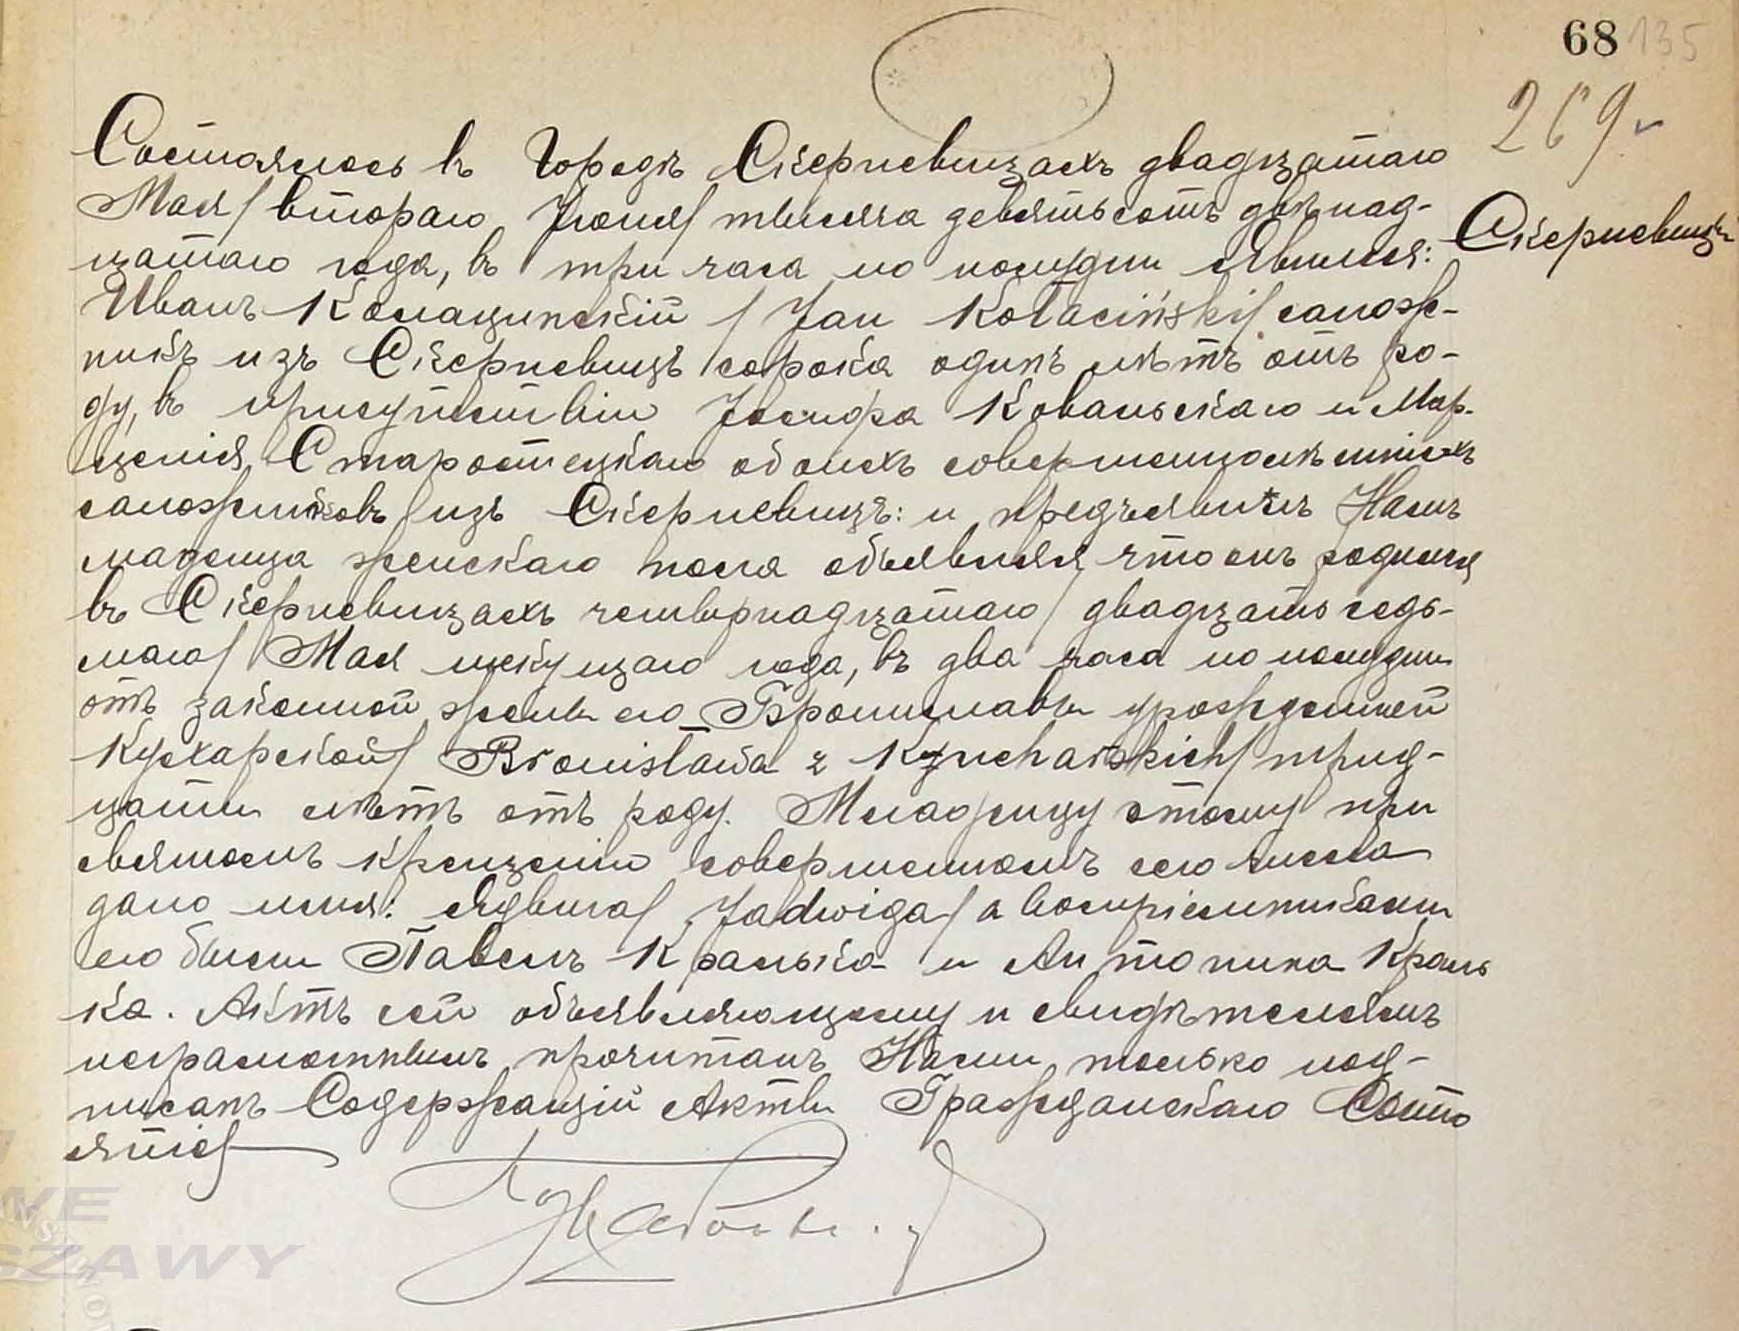 68 135
269
Состоялось въ Городѣ Скерневицахъ двадцатаго
Мая / втораго Іюня / тысяча девятьсотъ двѣнад-
Скерневицы
цатаго года, въ три часа по полудни явился:
Иванъ Колацинскій / Jan Kołaciński / сапож-
никъ изъ Скерневицъ сорока одинъ лѣтъ отъ ро-
ду, въ присутствіи Іосифа Ковальскаго и Мар-
целія Старостецкаго обоихъ совершеннолѣтнихъ
сапожниковъ изъ Скерневицъ: и предъявилъ Намъ
младенца женскаго пола объявляя что онъ родился
въ Скерневицахъ четырнадцатаго / двадцать седь-
маго / Мая текущаго года, въ два часа по полудни
отъ законной жены его Брониславы урожденной
Кухарской / Bronisława z Kucharskich / трид-
цати лѣтъ отъ роду. Младенцу этому при
святомъ крещеніи совершенномъ сего числа
дано имя: Ядвига / Jadwiga / а воспріемниками
его были Павелъ Кралька и Антонина Краль
ка. Актъ сей объявляющему и свидѣтелямъ
неграмотнымъ прочитанъ Нами только под-
писанъ Содержащій Акты Гражданскаго Состо
янія /
WE
SZAWY